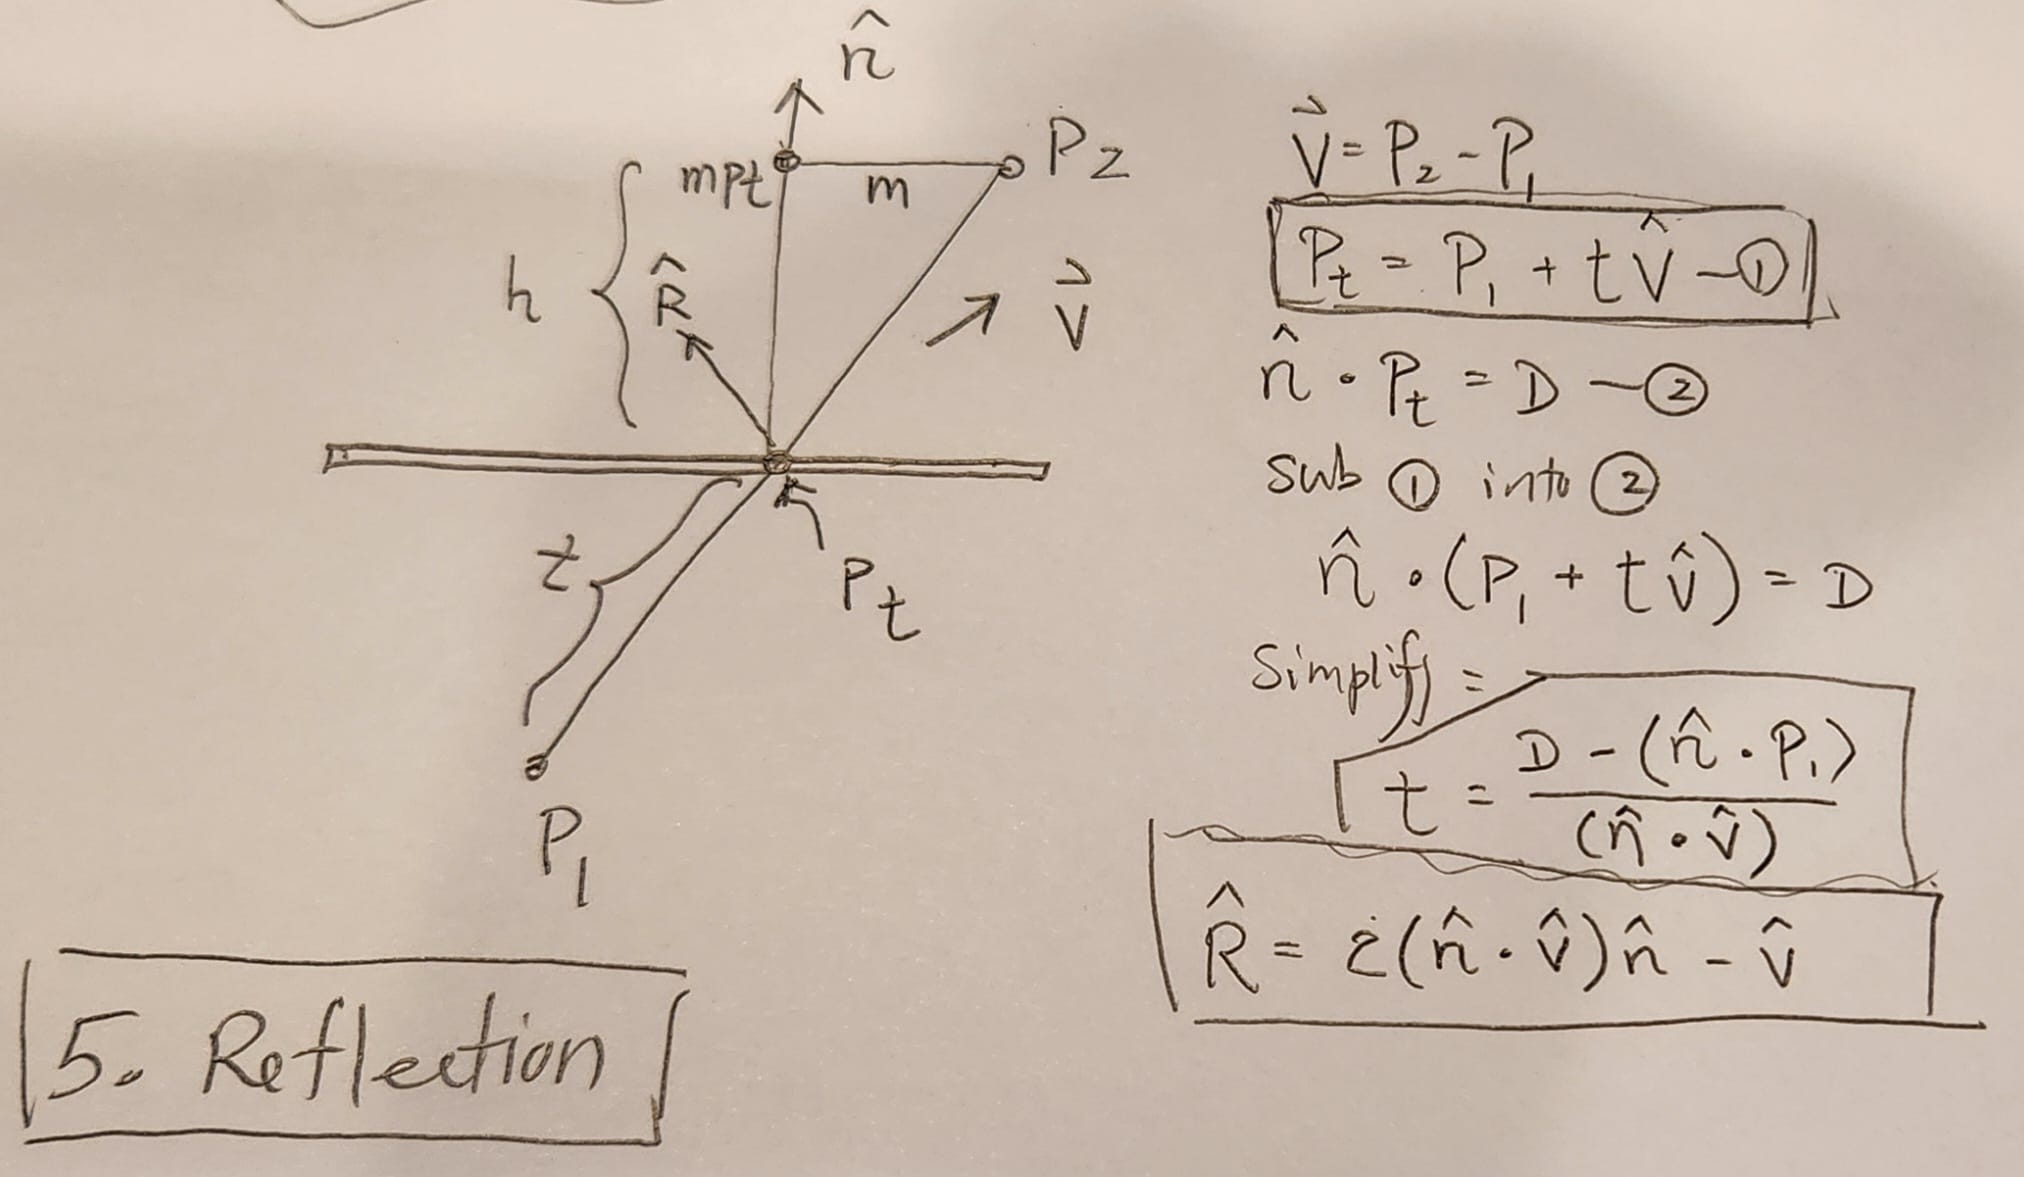 n̂
mpt
m
P₂
h
R̂
V⃗
t
Pₜ
P₁
5. Reflection
V⃗ = P₂ - P₁
Pₜ = P₁ + t V̂ — ①
n̂ · Pₜ = D — ②
Sub ① into ②
n̂ · (P₁ + t v̂) = D
Simplify =
t = D - (n̂ · P₁) / (n̂ · v̂)
R̂ = 2(n̂ · v̂)n̂ - v̂